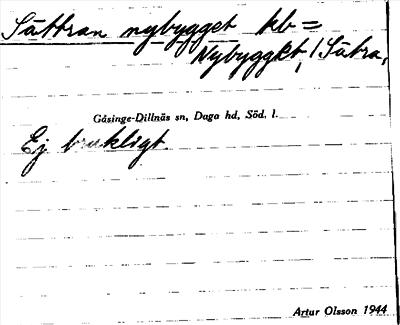 Sättran nybygget kb =
Nybygget, /Sätra,
Gåsinge-Dillnäs sn, Daga hd, Söd. l.
Ej brukligt.
Artur Olsson 1944